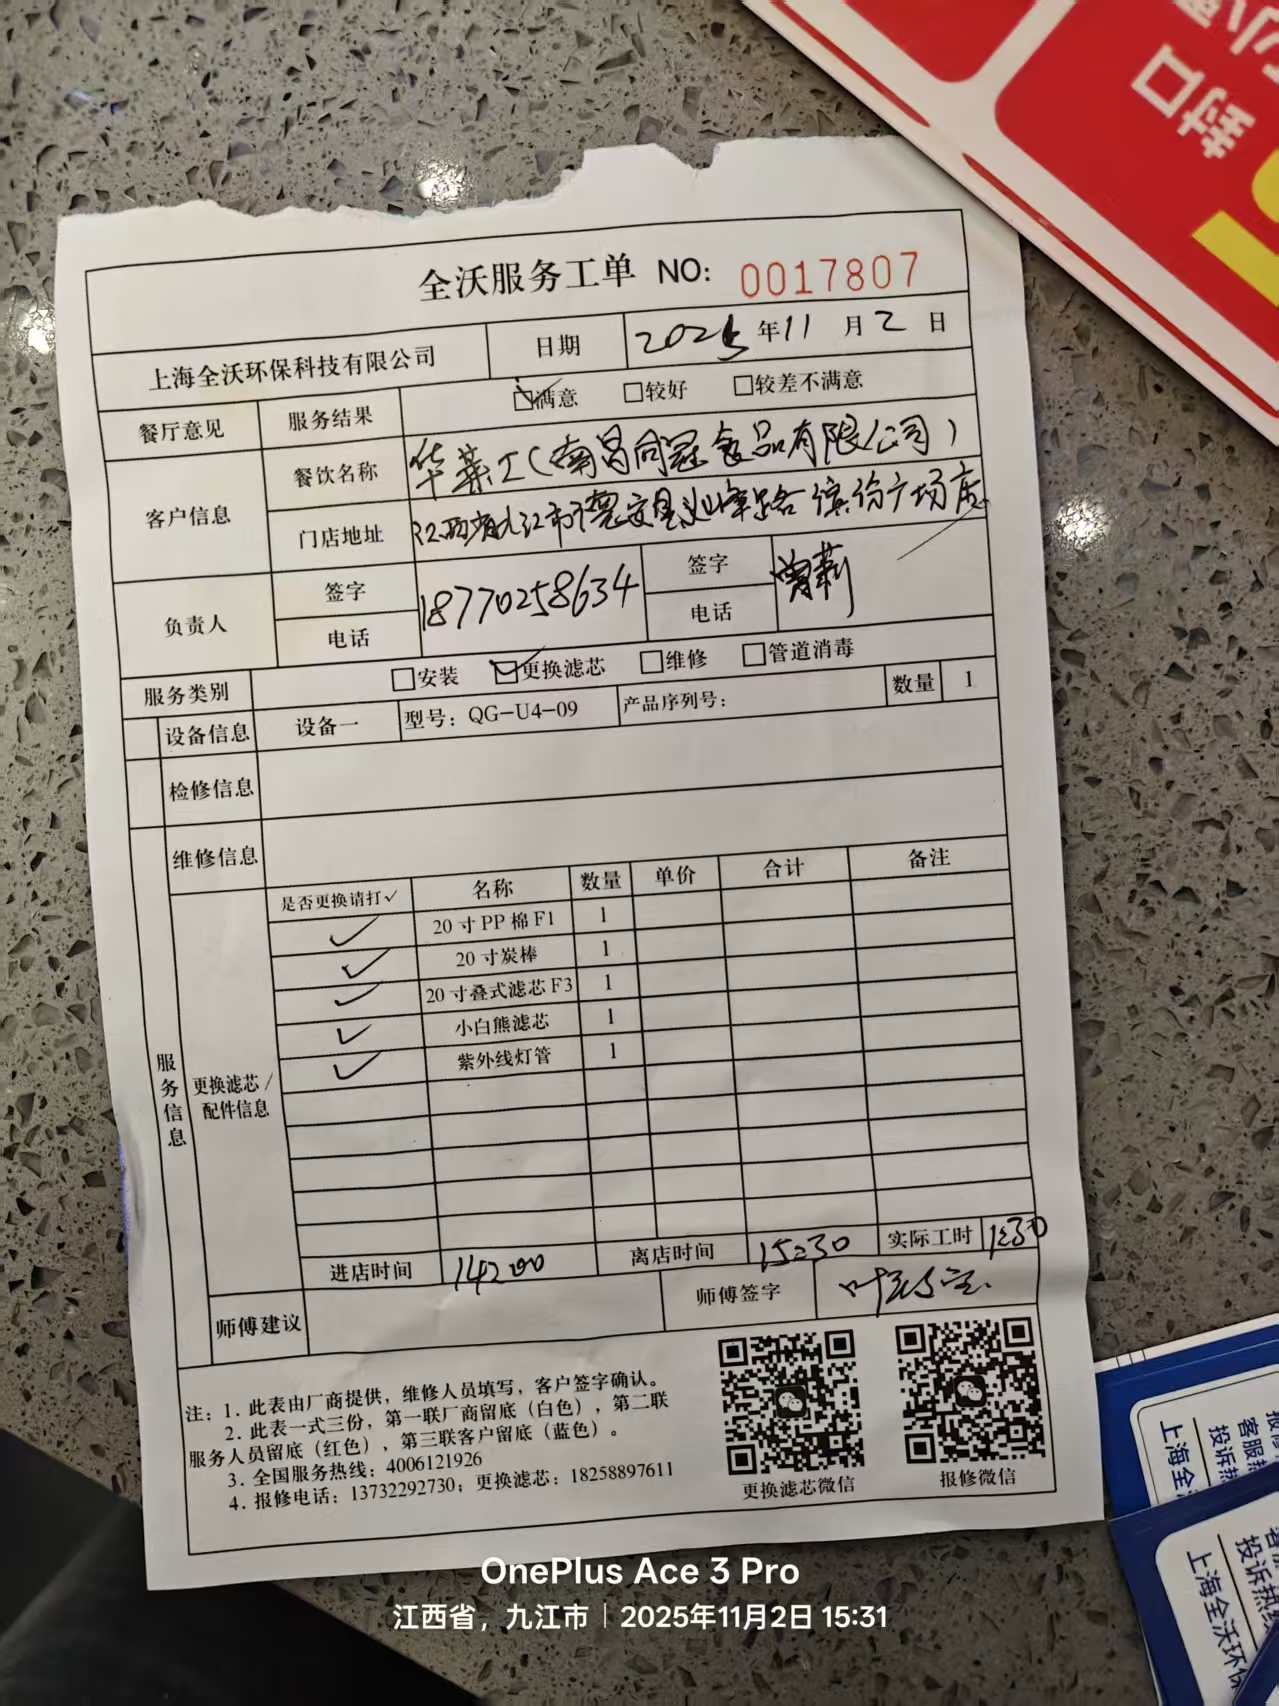 封口
全沃服务工单 NO: 0017807
上海全沃环保科技有限公司 日期 2025年11月2日
餐厅意见 服务结果 ☑满意 □较好 □较差不满意
客户信息 餐饮名称 华莱士(南昌同冠食品有限公司)
门店地址 江西省九江市德安县 路缤纷广场店
负责人 签字 电话 18770258634 签字 电话 曾莉
服务类别 □安装 ☑更换滤芯 □维修 □管道消毒
设备信息 设备一 型号:QG-U4-09 产品序列号: 数量 1
检修信息
维修信息
服务信息
更换滤芯/配件信息
是否更换请打✓ 名称 数量 单价 合计 备注
✓ 20寸PP棉F1 1
✓ 20寸炭棒 1
✓ 20寸叠式滤芯F3 1
✓ 小白熊滤芯 1
✓ 紫外线灯管 1
进店时间 14:00 离店时间 15:30 实际工时 1:30
师傅建议 师傅签字
注:1. 此表由厂商提供,维修人员填写,客户签字确认。
2. 此表一式三份,第一联厂商留底(白色),第二联
服务人员留底(红色),第三联客户留底(蓝色)。
3. 全国服务热线:4006121926
4. 报修电话:13732292730;更换滤芯:18258897611
更换滤芯微信 报修微信
上海全
投诉热
客服热
上海全沃环保
投诉热线
OnePlus Ace 3 Pro
江西省,九江市|2025年11月2日 15:31